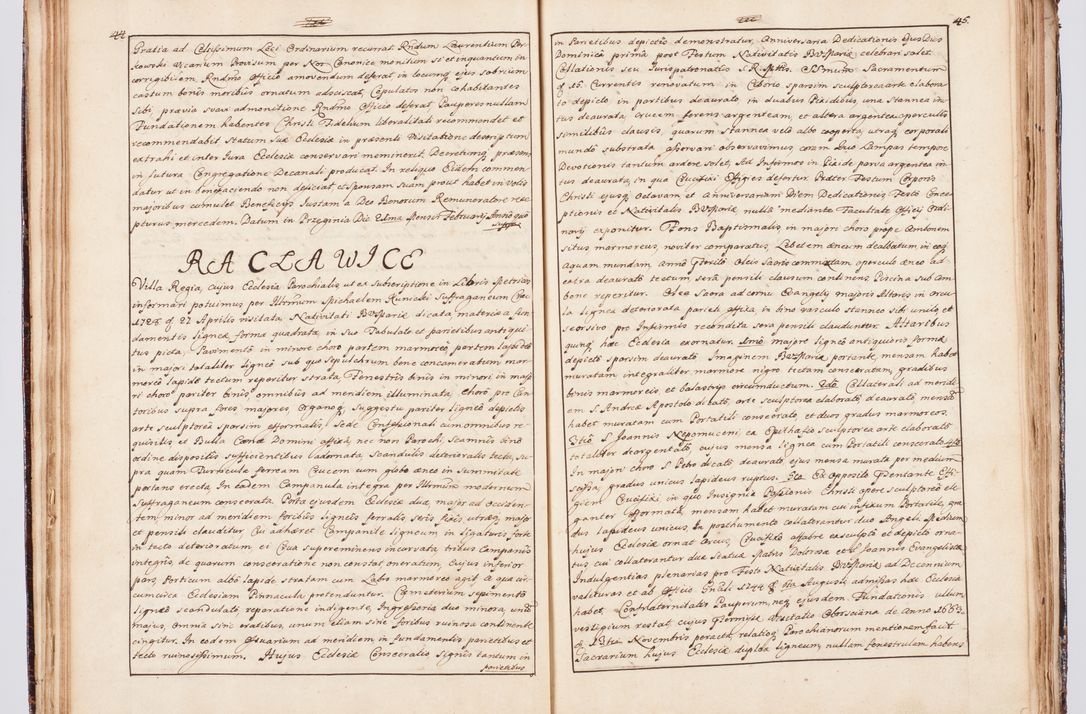 44
Gratia ad Celsissimum Loci Ordinarium recurrat. Rndum Laurentium
kowski Vicarium Provisum per Nos Canonice monitum si et inquantum in
corrigibilem Rndmo Officio amovendum deferat in locumq ejus sobrium
castum bonis moribus ornatum adsciscat, Copulatos non cohabitantes
sibi prævia suaq admonitione Rndmo Officio deferat Pauperes nullam
Fundationem habentes Christi Fidelium liberalitati recommendet et
recommendabit Statum suæ Ecclesiæ in præsenti Visitatione descriptum
extrahi et inter Jura Ecclesiæ conservari meminerit, Decretumq præsens
in futura Congregatione Decanali producat. In reliquo Eidem commen
datur ut in benefaciendo non deficiat et sponsam suam prout habet in votis
majoribus cumulet Beneficijs Justam a Deo Bonorum Remuneratore rece
pturus mercedem. Datum in Przeginia Die Mensis Februarij Anno quo
supra
RACLAWICE
Villa Regia, cujus Ecclesia Parochialis ut ex Subscriptione in Libris Metrices
informari potuimus per Illrmum Michaelem Kunicki Suffraganeum Crac
1727 d 27 Aprilis visitata Nativitati B.V. Mariæ dicata, materiæ a fun
damentis ligneæ forma quadrata in suo Tabulato et parietibus antiqui
tus picta, Pavimento in minore choro partem marmoreo, partem lapideo
in majori totaliter ligneo sub quo Sepulchrum bene concameratum mar
moreo lapide tectum reperitur strata, Fenestris binis in minori in majo
ri choro pariter binis omnibus ad meridiem illuminata, Choro pro Can
toribus supra fores majores, Organoq Suggestu pariter ligneo depictis
arte sculptorea sparsim efformalis, Sede Confessionali cum omnibus re
quisitis et Bulla Cænæ Domini affixa, nec non Parochi, Scamnis bino
ordine dispositis sufficientibus adornata, Scandulis deterioralis tecta, su
pra quam Turricula ferream Crucem cum globo æneo in Summitate
portans erecta In eadem Campanula integra per Illrmum modernum
Suffraganeum consecrata, Porta ejusdem Ecclesiæ duæ, major ad occiden
tem, minor ad meridiem foribus ligneis ferratis seris fixis utræq, major
et pensili clauditur, Cui adhæret Campanile ligneum in ligatura forte
in tecto deterioratum et Crux supereminens incurvata, tribus Campanis
integris, de quarum consecratione non constat oneratum, Cujus inferior
pars Porticum albo lapide stratam cum Labro marmoreo agit, a qua cir
cumcirca Ecclesiam Pinnacula protenduntur. Cæmeterium sepimento
ligneo scandulati, reparatione indigente, Ingressoria duo minora, unum
majus, omnia sine cratibus, unum etiam sine foribus ruinosa continente
cingitur. In eodem Ossuarium ad meridiem in fundamentis parietibus et
tecto ruinosissimum. Hujus Ecclesiæ Consecratio signis tantum in
parietibus
45.
in Parietibus depictis demonstratur, Anniversaria Dedicationis ejus Dies
Dominica prima post Festum Nativitatis B.V. Mariæ celebrari solet.
Collationis seu Jurispatronatus S. R. Mttis. SSmum Sacramentum
d 15 Currentis renovatum in Ciborio sparsim sculptorea arte elabora
to depicto in partibus deaurato, in duabus Pixidibus una Stannea in
tus deaurata, Crucem ferens argenteam, et altera argentea operculis
similibus clausis, quarum stannea velo albo cooperta, utræq corporali
mundo substrata observari observavimus, coram Quo Lampas tempore
Devotionis tantum ardere solet, Ad Infirmos in Pixide parva argentea in
tus deaurata, in qua Crucifixi Effigies defertur. Præter Festum Corporis
Christi ejusq Octavam, et Anniversariam Diem Dedicationis Festo Conce
ptionis et Nativitatis B.V. Mariæ nulla mediante Facultate Officij Ordi
narij exponitur. Fons Baptismalis, in majori choro prope Ambonem
situs marmoreus, noviter comparatus, Lebetem æneum dealbatum in eoq
Aquam mundam, Anno præterito Oleis Sacris commixtam operculo æneo ad
extra deaurato tectum, sera pensili clausum continens Piscina sub Am
bone reperitur. Olea Sacra ad cornu Evangelij majoris Altaris in arcu
la lignea deteriorata parieti affixa, in bino vasculo stanneo sibi unito, et
seorsivo pro Infirmis recondita sera pensili clauduntur. Altaribus
quinq hæc Ecclesia exornatur, 1mo majore ligneo antiquioris formæ
depicto sparsim deaurato Imaginem B.V. Mariæ portante, mensam habet
muratam integraliter marmore nigro tectam consecratam, gradibus
binis marmoreis et balastris circumductum. 2do Collaterali ad meridi
em S. Andreæ Apostolo dicato, arte sculptorea elaborato deaurato, mensam
habet muratam cum Portatili consecrato et duos gradus marmoreos.
3tio S. Joannis Nepomuceni ex Epithafio sculptorea arte elaborato
totaliter deargentato, cujus mensa lignea cum Portatili consecrato 4to
In majori choro S. Petro dicato deaurato, ejus mensa murata per medium
scissa, gradus unicus lapideus ruptus. 5to Ex Opposito Præntante Effi
giem Crucifixi in quo Insignia Passionis Christi opere sculptoreo ele
ganter efformata, mensam habet muratam cui infixum Portatile, gra
dus lapideus unicus. In parchumento collaterantur duo Angeli. Medium
hujus Ecclesiæ ornat Arcus Crucifixo affabre exsculpto et depicto orna
tus cui collaterantur duæ Statuæ Matris Dolorosæ et S. Joannis Evangelistæ
Indulgentias plenarias pro Festo Nativitatis B.V. Mariæ ad Decennium
valituras et ab Officio Gnali 1744 d 7ma Augusti admissas hæc Ecclesia
habet. Confraternitatis Pauperum, neq ejusdem Fundationis ullum
vestigium restat, cujus præmissæ Visitatio Oborsciana de Anno 1663.
d 13tia Novembris peracta relatioq Parochianorum mentionem facit.
Sacrarium hujus Ecclesiæ duplex ligneum, nullam fenestrulam habens